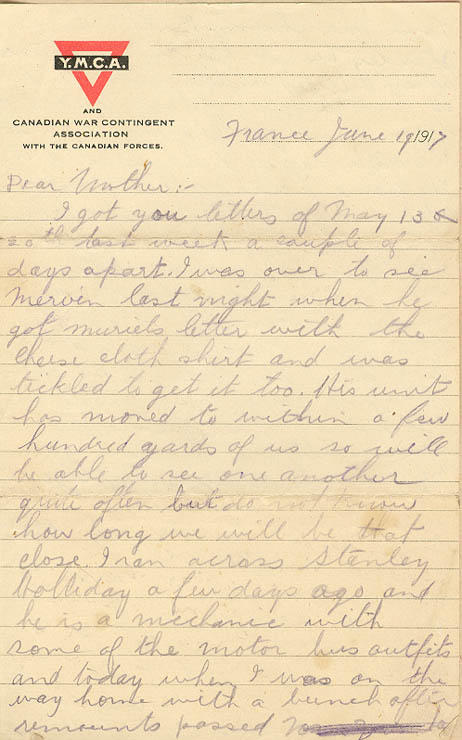 Y.M.C.A.
AND
CANADIAN WAR CONTINGENT
ASSOCIATION
WITH THE CANADIAN FORCES.
France June 19 1917
Dear Mother:-
I got you letters of May 13 &
20th last week a couple of
days apart. I was over to see
Mervin last night when he
got Muriels letter with the
cheese cloth shirt and was
tickled to get it too. His unit
has moved to within a few
hundred yards of us so will
be able to see one another
quite often but do not know
how long we will be that
close. I ran across Stanley
Holliday a few days ago and
he is a mechanic with
some of the motor bus outfits
and today when I was on the
way home with a bunch of
remounts passed